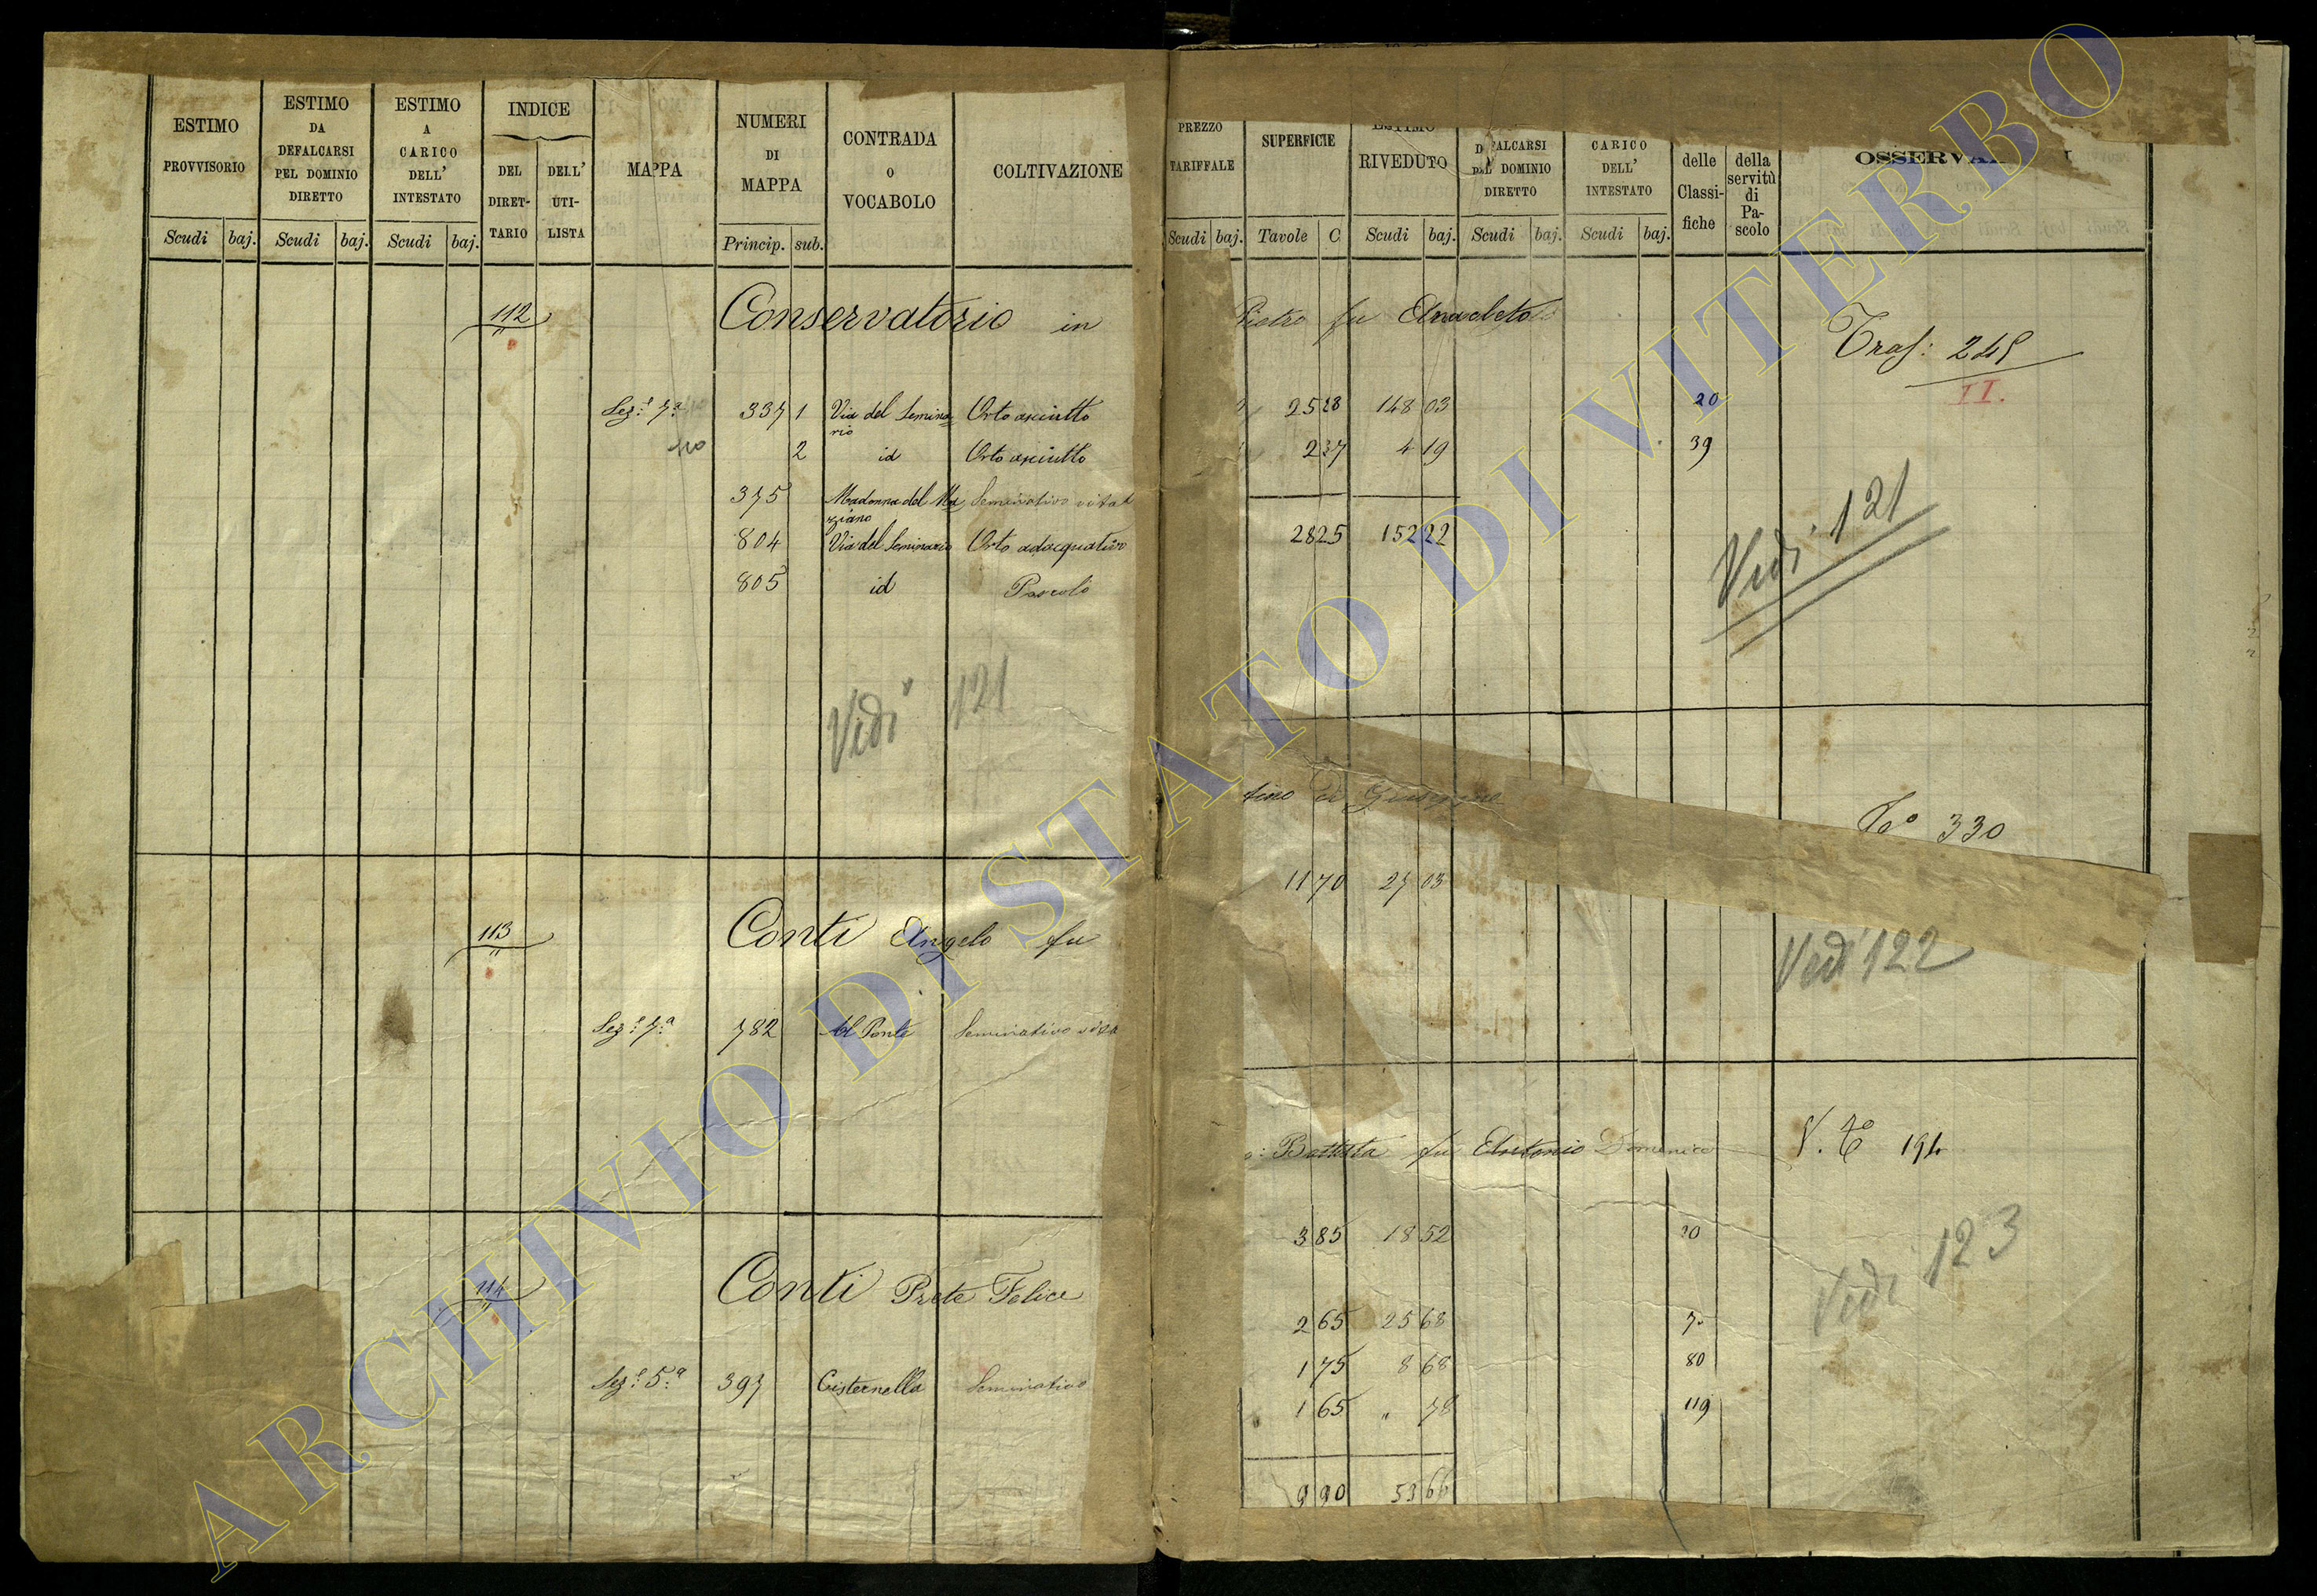 ESTIMO
PROVVISORIO
Scudi baj.
ESTIMO
DA
DEFALCARSI
PEL DOMINIO
DIRETTO
Scudi baj.
ESTIMO
A
CARICO
DELL'
INTESTATO
Scudi baj.
INDICE
DEL
DIRET-
TARIO
DELL'
UTI-
LISTA
MAPPA
NUMERI
DI
MAPPA
Princip. sub.
CONTRADA
O
VOCABOLO
COLTIVAZIONE
112 Conservatorio in
Sez.e 7.a 337 1 Via del Semina= Orto asciutto
rio
2 id Orto asciutto
375 Madonna del
804 Via del Seminario Orto adacquativo
805 id Pascolo
Vedi 121
113 Conti Angelo fu
Sez.e 7.a 782 Al Ponte Seminativo
114 Conti Prete Felice
Sez.e 5.a 397 Cisternella Seminativo
PREZZO
TARIFFALE
Scudi baj.
SUPERFICIE
Tavole C
ESTIMO
RIVEDUTO
Scudi baj.
DEFALCARSI
DEL DOMINIO
DIRETTO
Scudi baj.
CARICO
DELL'
INTESTATO
Scudi baj.
delle
Classi-
fiche
della
servitù
di
Pa-
scolo
Pietro fu Anacleto
Tras: 245
II.
25 88 148 03 20
2 37 4 19 39
28 25 152 22
Vedi 121
tino di
To 330
11 70 27 03
Vedi 122
Battista fu Antonio Domenico V. To 194
3 85 18 52 20
Vedi 123
2 65 25 68
1 75 8 68 80
1 65 " 78 119
9 90 53 66
ARCHIVIO DI STATO DI VITERBO